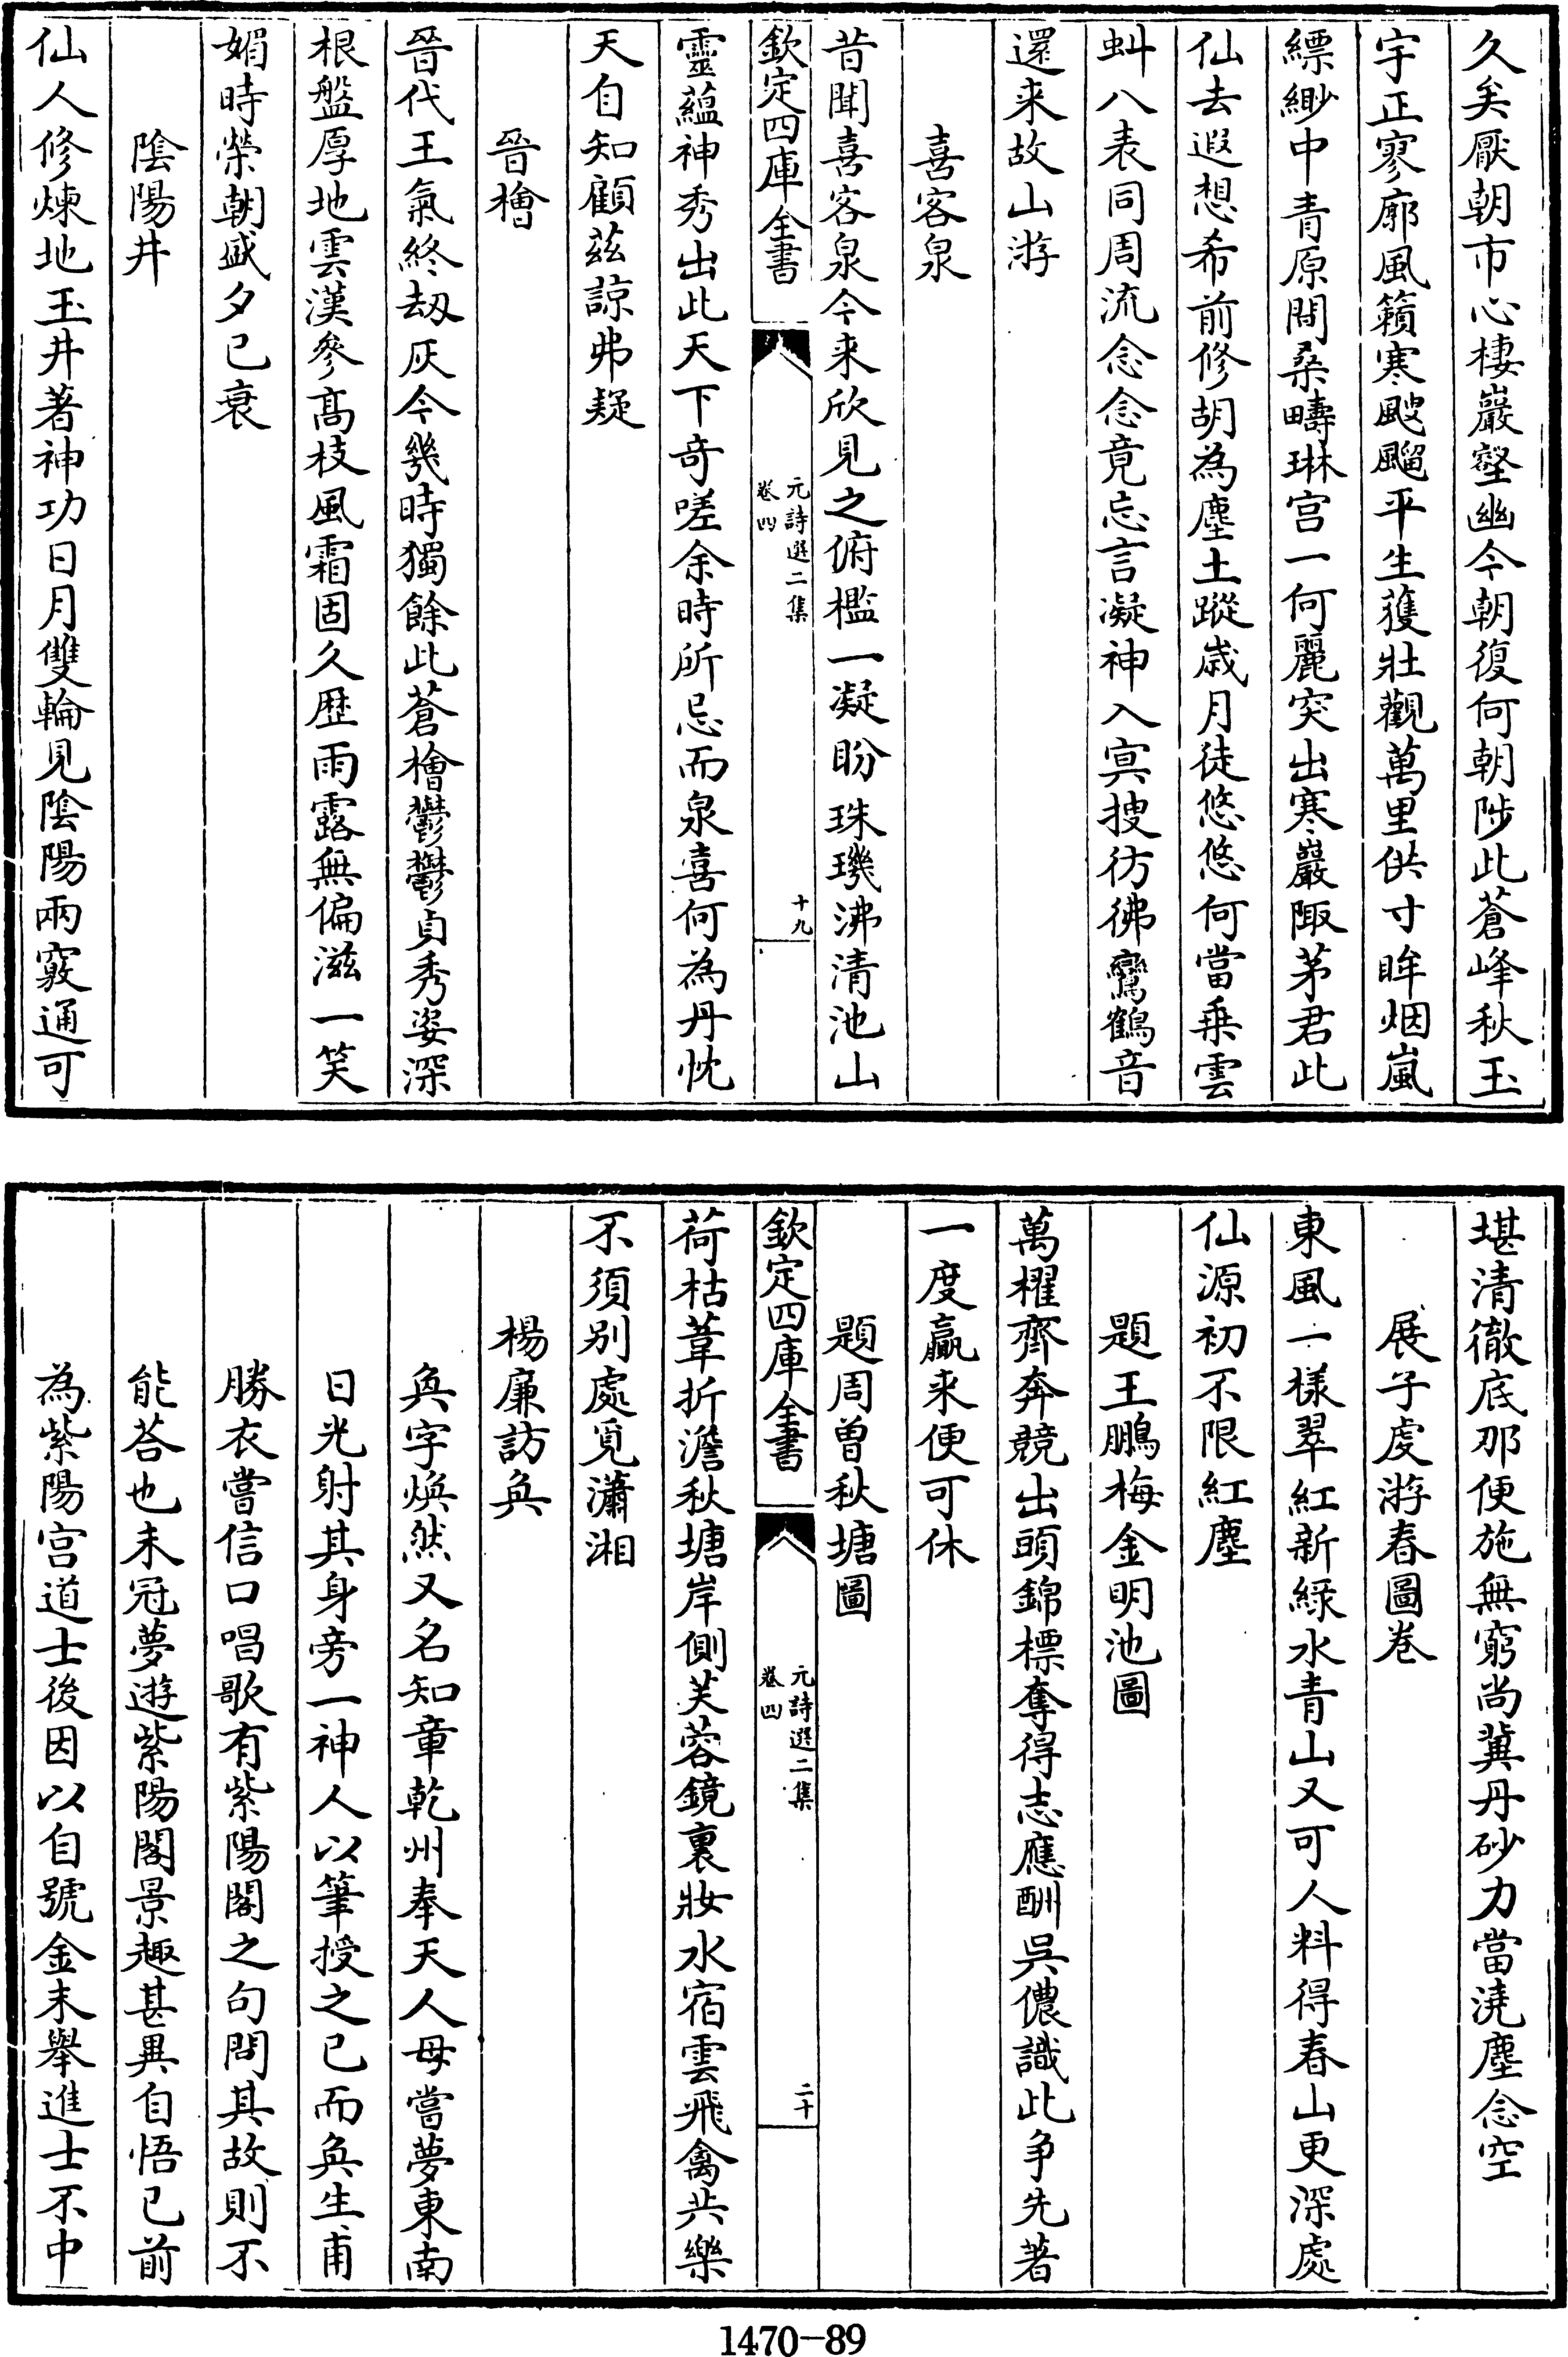 久矣厭朝市心棲巖壑幽今朝復何朝陟此蒼峰秋玉
宇正寥廓風籟寒颼飀平生蒦壯觀萬里供寸眸烟嵐
縹緲中青原間桑疇琳宫一何麗突出寒巖陬茅君此
仙去遐想希前修胡為塵土蹤歳月徒悠悠何當乗雲
虯八表同周流念念竟忘言凝神入冥搜彷彿鸞鶴音
還来故山游
喜客泉
昔聞喜客泉今来欣見之俯檻一凝盼珠璣沸清池山
欽定四庫全書
元詩選二集
卷四
十九
靈藴神秀出此天下奇嗟余時所忌而泉喜何為丹忱
天自知顧茲諒弗疑
晉檜
晉代王氣終刼灰今幾時獨餘此蒼檜鬱鬱貞秀姿深
根盤厚地雲漢參髙枝風霜固久歴雨露無偏滋一笑
媚時榮朝盛夕已衰
陰陽井
仙人修煉地玉井著神功日月雙輪見陰陽兩竅通可
堪清徹底那便施無窮尚冀丹砂力當澆塵念空
展子虔游春圖卷
東風一樣翠紅新緑水青山又可人料得春山更深處
仙源初不限紅塵
題王鵬梅金明池圖
萬櫂齊奔競出頭錦標奪得志應酬吳儂識此争先著
一度贏来便可休
題周曽秋塘圖
欽定四庫全書
元詩選二集
卷四
二十
荷枯葦折澹秋塘岸側芙蓉鏡裏妝水宿雲飛禽共樂
不須别處覓瀟湘
楊廉訪奐
奐字煥然又名知章乾州奉天人母嘗夢東南
日光射其身旁一神人以筆授之已而奐生甫
勝衣嘗信口唱歌有紫陽閣之句問其故則不
能荅也未冠夢遊紫陽閣景趣甚異自悟已前
為紫陽宫道士後因以自號金末舉進士不中
1470-89